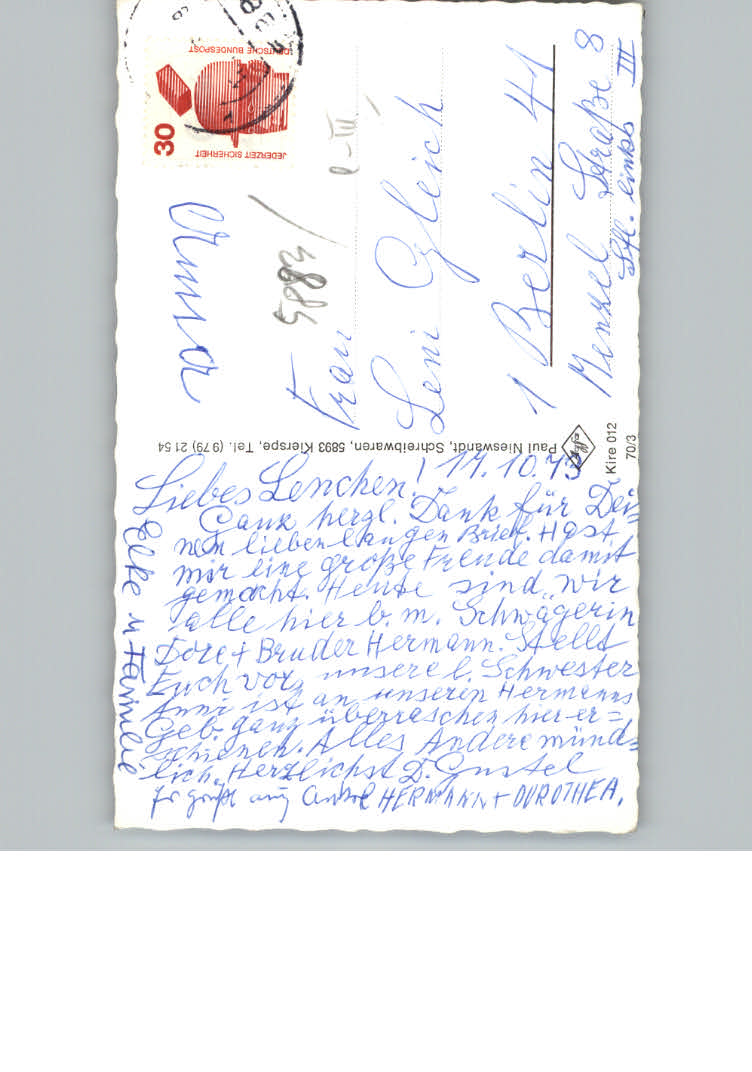 DEUTSCHE BUNDESPOST
30
JEDERZEIT SICHERHEIT
Anna
5883
Frau
Leni Gleich
1 Berlin 41
Menzel Straße 8
Stfl. links III
Paul Nieswandt, Schreibwaren, 5893 Kierspe, Tel. (9 79) 21 54
Kire 012
70/3
17.10.73
Liebes Lenchen!
Ganz herzl. Dank für Dei=
nen lieben langen Brief. Hast
mir eine große Freude damit
gemacht. Heute sind wir
alle hier b. m. Schwägerin
Dore + Bruder Hermann. Stellt
Euch vor, unsere l. Schwester
Anni ist an unseren Hermanns
Geb. ganz überraschen hier er=
schienen. Alles Andere münd=
lich. Herzlichst D. Gustel
HERMANN + DOROTHEA.
Elke u Familie